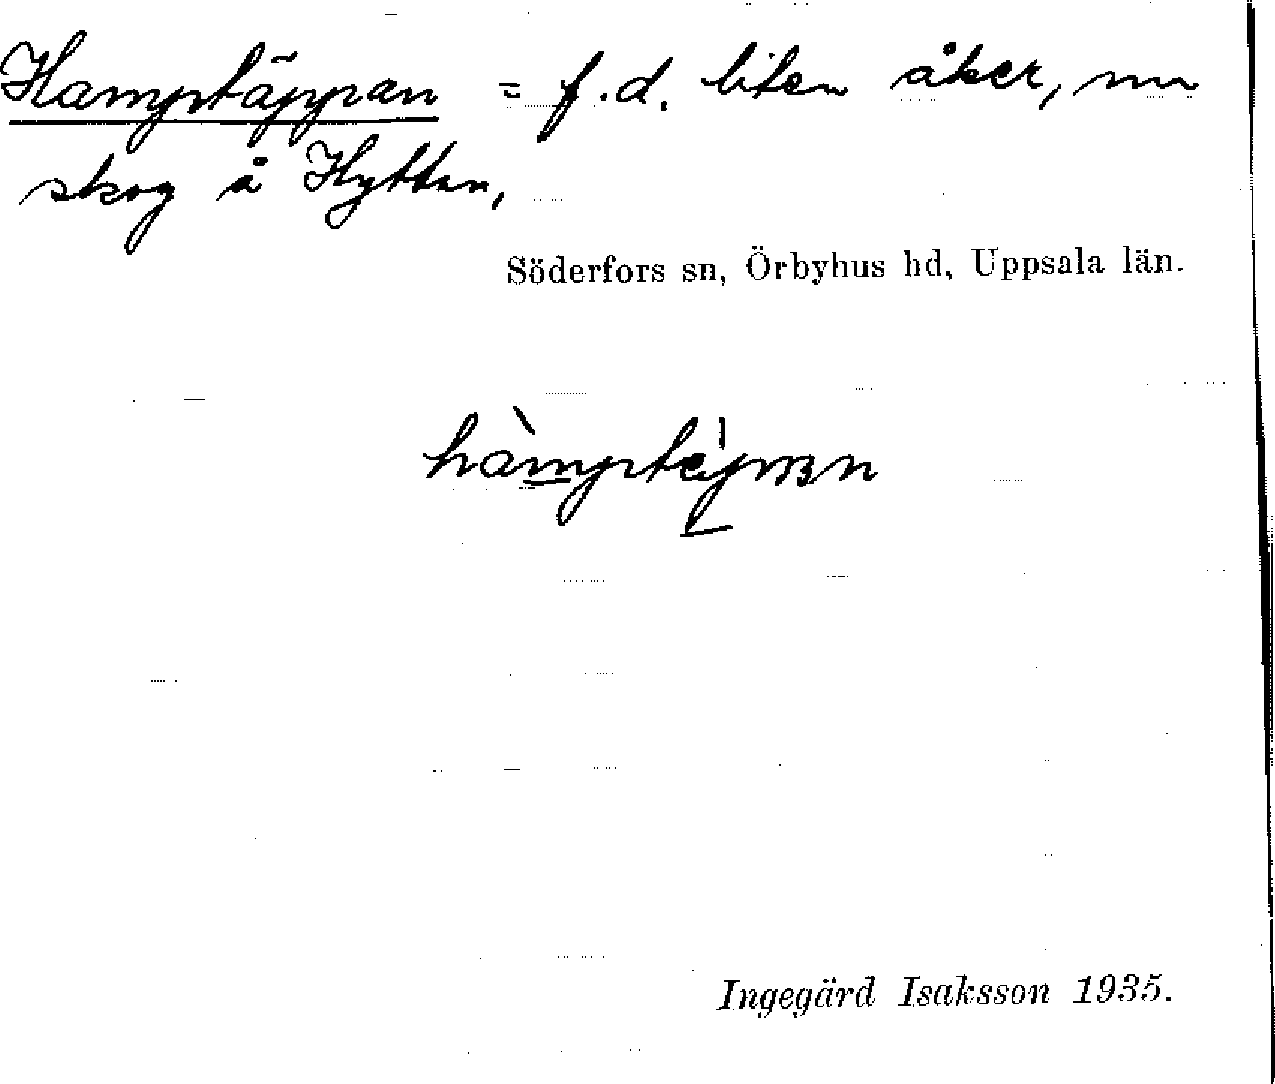 Hamptäppan = f.d. liten åker, nu
skog å Hyttan,
Söderfors sn, Örbyhus hd, Uppsala län.
Ingegärd Isaksson 1935.